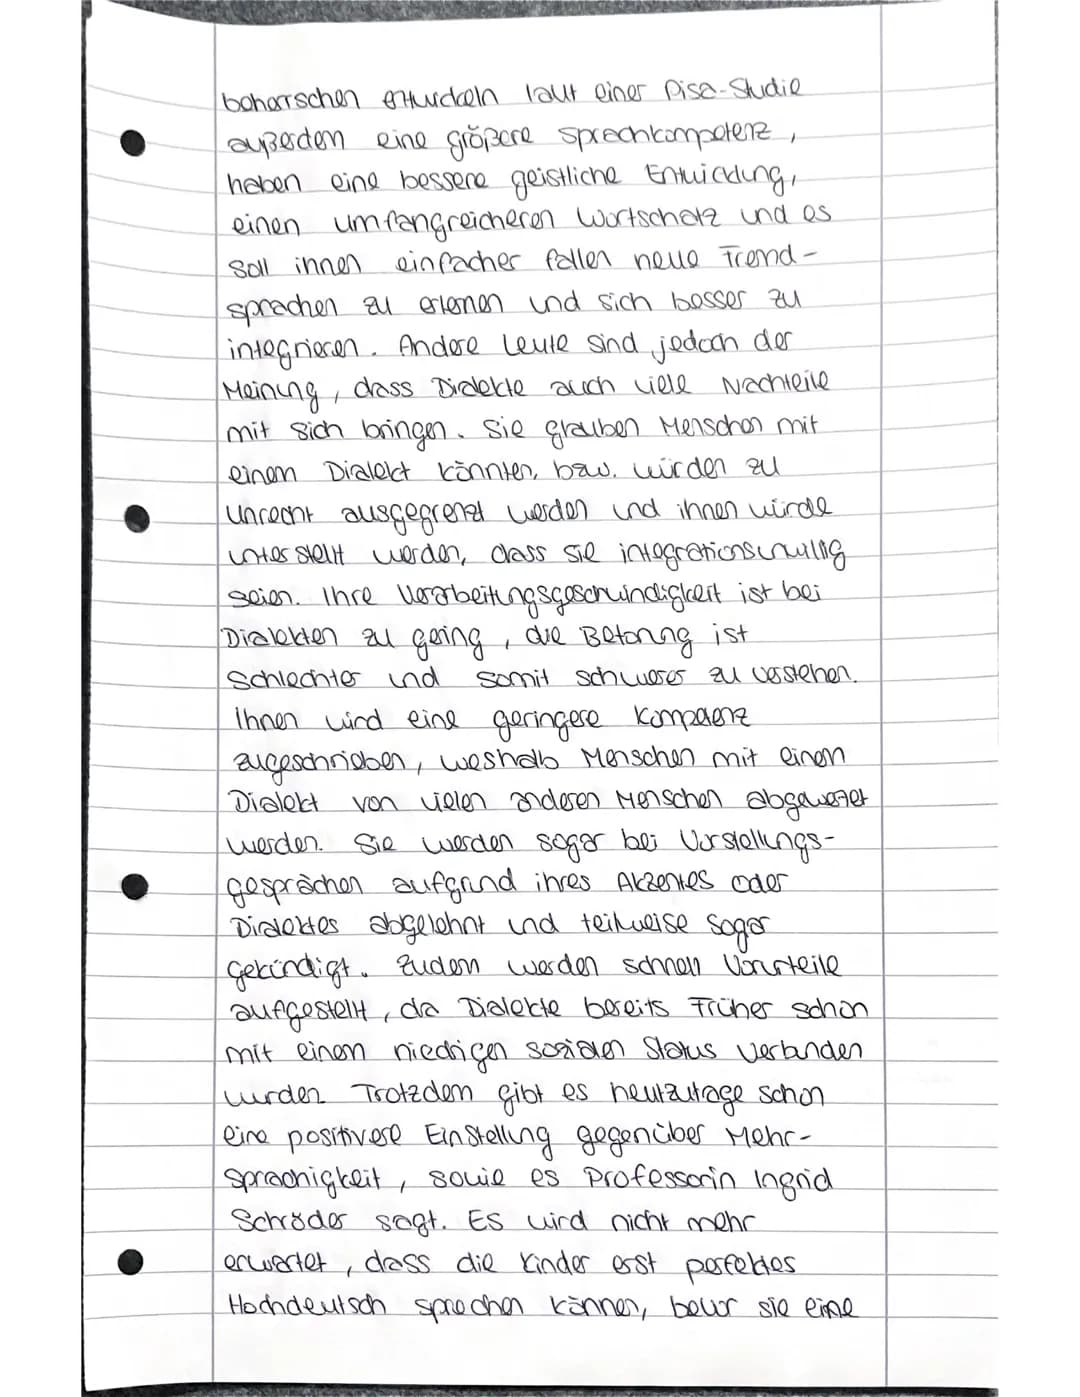 beherrschen entwickeln laut einer Pisa-Studie
außerdem eine größere Sprachkompetenz,
haben eine bessere geistliche Entwicklung,
einen umfangreicheren Wortschatz und es
soll ihnen einfacher fallen neue Fremd-
sprachen zu erlernen und sich besser zu
integrieren. Andere Leute sind jedoch der
Meinung, dass Dialekte auch viele Nachteile
mit sich bringen. Sie glauben Menschen mit
einem Dialekt könnten, bzw. würden zu
Unrecht ausgegrenzt werden und ihnen würde
unterstellt werden, dass sie integrationsunwillig
seien. Ihre Verarbeitungsgeschwindigkeit ist bei
Dialekten zu gering, die Betonung ist
schlechter und somit schwerer zu verstehen.
Ihnen wird eine geringere Kompetenz
zugeschrieben, weshalb Menschen mit einem
Dialekt von vielen anderen Menschen abgewertet
werden. Sie werden sogar bei Vorstellungs-
gesprächen aufgrund ihres Akzentes oder
Dialektes abgelehnt und teilweise sogar
gekündigt. Zudem werden schnell Vorurteile
aufgestellt, da Dialekte bereits früher schon
mit einem niedrigen sozialen Status verbunden
wurden Trotzdem gibt es heutzutage schon
eine positivere Einstellung gegenüber Mehr-
sprachigkeit, sowie es Professorin Ingrid
Schröder sagt. Es wird nicht mehr
erwartet, dass die Kinder erst perfektes
Hochdeutsch sprechen können, bevor sie eine